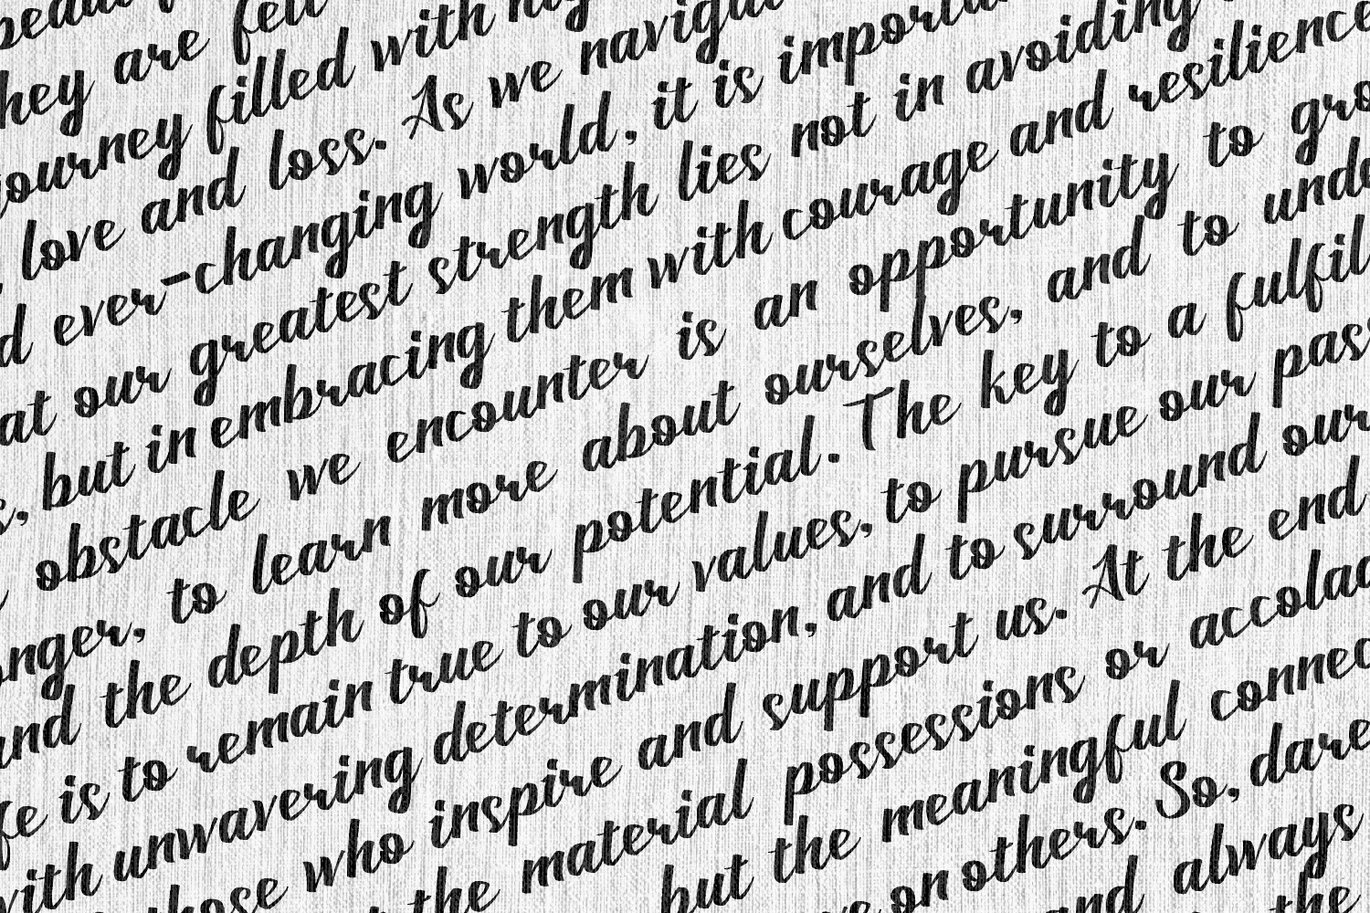 beau
hey are felt
ourney filled with hig
love and loss. As we naviga
d ever-changing world, it is importa
at our greatest strength lies not in avoiding
s, but in embracing them with courage and resilience
obstacle we encounter is an opportunity to gro
onger, to learn more about ourselves, and to unde
and the depth of our potential. The key to a fulfil
fe is to remain true to our values, to pursue our pas
with unwavering determination, and to surround our
those who inspire and support us. At the end
the material possessions or accolad
but the meaningful connec
on others. So, dare
and always
the